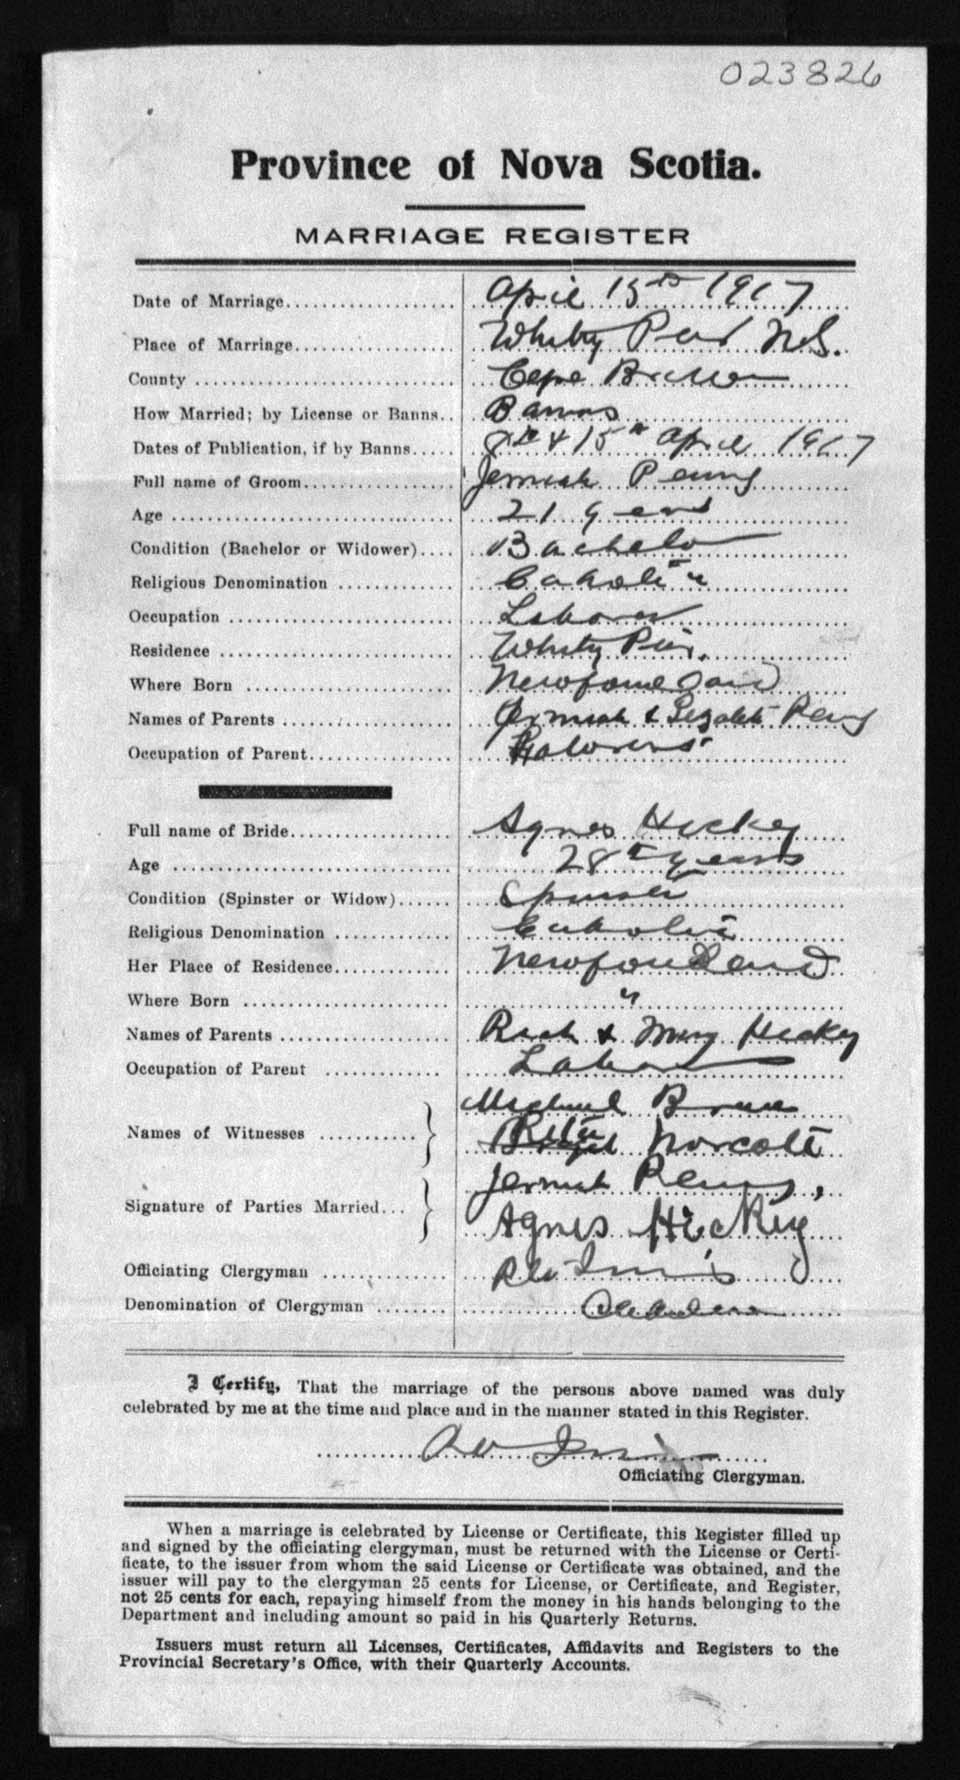 023826
Province of Nova Scotia.
MARRIAGE REGISTER
Date of Marriage April 15th 1917
Place of Marriage Whitby Pier N.S.
County Cape Breton
How Married; by License or Banns Banns
Dates of Publication, if by Banns 8th & 15th April 1917
Full name of Groom Jermiah Penny
Age 21 years
Condition (Bachelor or Widower) Bachelor
Religious Denomination Catholic
Occupation Laborer
Residence Whitby Pier.
Where Born Newfoundland
Names of Parents Jermiah & Elizabeth Penny
Occupation of Parent
Full name of Bride Agnes Hickey
Age 28 years
Condition (Spinster or Widow) Spinster
Religious Denomination Catholic
Her Place of Residence Newfoundland
Where Born "
Names of Parents & Mary Hickey
Occupation of Parent Laborer
Names of Witnesses } Michael
Norcott
Signature of Parties Married } Jermiah Penny,
Agnes Hickey
Officiating Clergyman
Denomination of Clergyman
I Certify, That the marriage of the persons above named was duly
celebrated by me at the time and place and in the manner stated in this Register.
Officiating Clergyman.
When a marriage is celebrated by License or Certificate, this Register filled up
and signed by the officiating clergyman, must be returned with the License or Certi-
ficate, to the issuer from whom the said License or Certificate was obtained, and the
issuer will pay to the clergyman 25 cents for License, or Certificate, and Register,
not 25 cents for each, repaying himself from the money in his hands belonging to the
Department and including amount so paid in his Quarterly Returns.
Issuers must return all Licenses, Certificates, Affidavits and Registers to the
Provincial Secretary's Office, with their Quarterly Accounts.